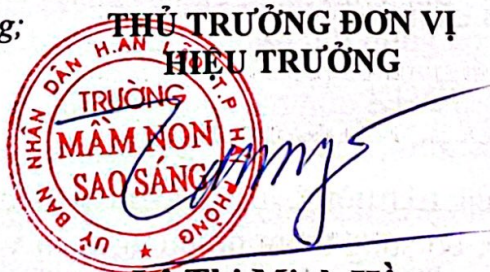 g;
THỦ TRƯỞNG ĐƠN VỊ
HIỆU TRƯỞNG
UỶ BAN NHÂN DÂN H.AN LÃO T.P HẢI PHÒNG
TRƯỜNG
MẦM NON
SAO SÁNG
Thị Minh